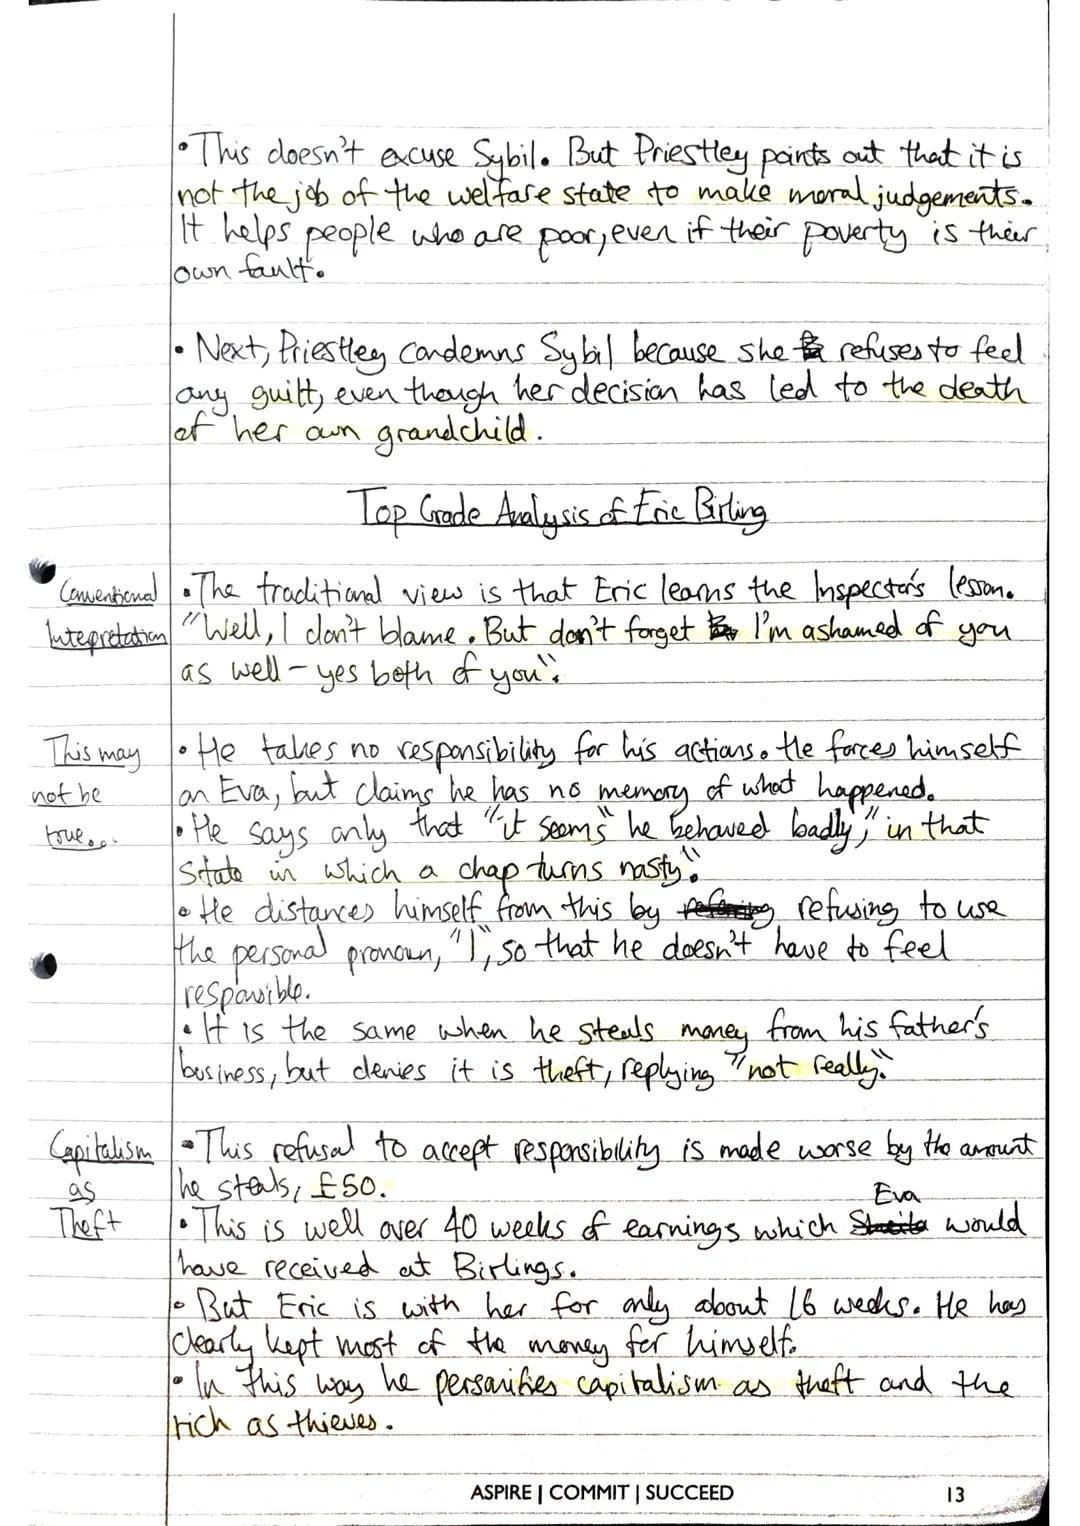 • This doesn't excuse Sybil. But Priestley points out that it is
not the job of the welfare state to make moral judgements.
It helps people who are poor, even if their poverty is their
own fault.
• Next, Priestley condemns Sybil because she refuses to feel
any guilt, even though her decision has led to the death
of her own grandchild.
Top Grade Analysis of Eric Birling
Conventional
Intepretation
• The traditional view is that Eric learns the Inspector's lesson.
"Well, I don't blame. But don't forget I'm ashamed of you
as well – yes both of you".
This may
not be
true...
• He takes no responsibility for his actions. He forces himself
on Eva, but claims he has no memory of what happened.
• He says only that "it seems" he behaved badly, "in that
state in which a chap turns nasty."
• He distances himself from this by refusing to use
the personal pronoun, "I", so that he doesn't have to feel
responsible.
• It is the same when he steals money from his father's
business, but denies it is theft, replying "not really."
Capitalism
as
Theft
• This refusal to accept responsibility is made worse by the amount
he steals, £50.
• This is well over 40 weeks of earnings which Eva would
have received at Birlings.
• But Eric is with her for only about 16 weeks. He has
clearly kept most of the money for himself.
• In this way he personifies capitalism as theft and the
rich as thieves.
ASPIRE | COMMIT | SUCCEED
13